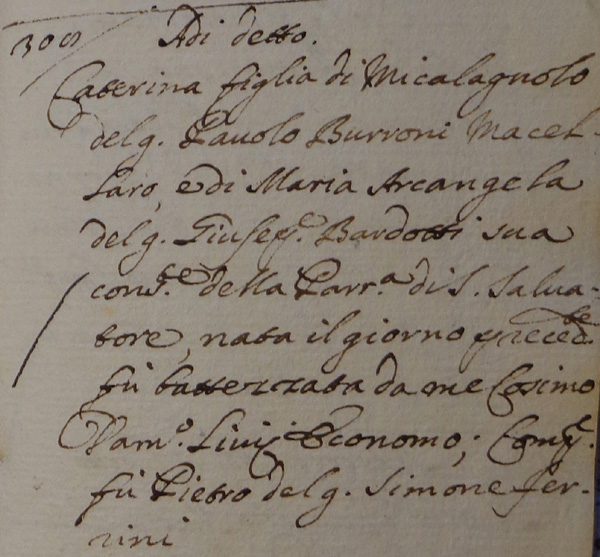 309 Adi detto.
Caterina figlia di Micalagnolo
del q. Pauolo Burroni Macel-
laro, e di Maria Arcangela
del q. Giusep.e Bardotti sua
cons.te della Parr.a di S. Salua-
tore, nata il giorno preced.te
fù battezzata da me Cosimo
Dam.o Livij Economo; Comp.e
fù Pietro del q. Simone Fer-
rini